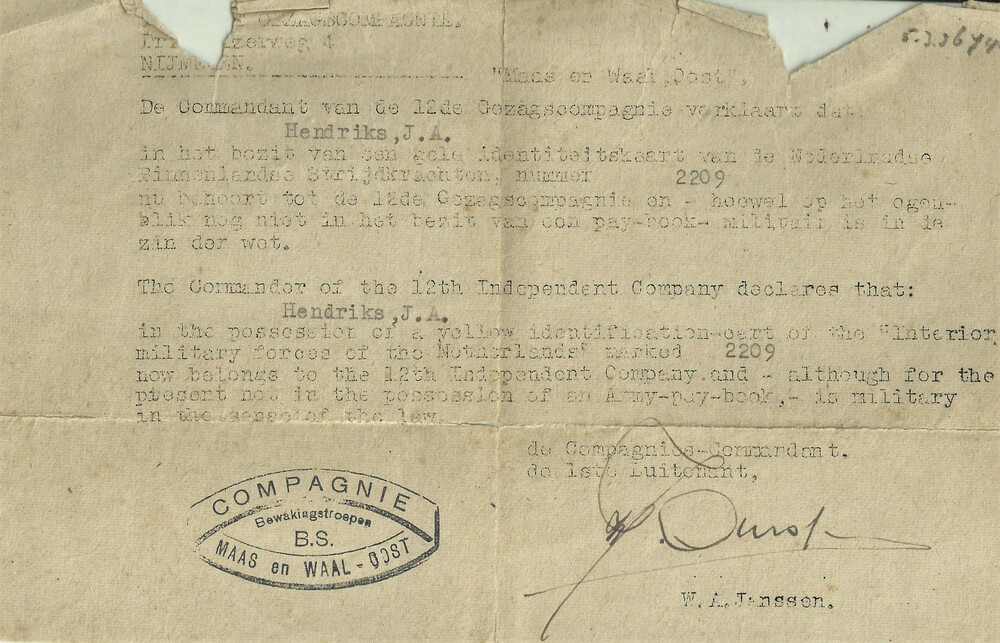 GEZAGSCOMPAGNIE.
4
NIJMEGEN.
"Maas en Waal,Oost",
De Commandant van de 12de Gezagscompagnie verklaart dat:
Hendriks,J.A.
in het bezit van een gele identiteitskaart van de Nederlandse
Binnenlandse Strijdkrachten, nummer 2209
nu behoort tot de 12de Gezagscompagnie en - hoewel op het ogen-
blik nog niet in het bezit van een pay-book- militair is in de
zin der wet.
The Commander of the 12th Independent Company declares that:
Hendriks,J.A.
in the possession of a yellow identification-cart of the "Interior
military forces of the Netherlands" marked 2209
now belongs to the 12th Independent Company.and - although for the
present not in the possession of an Army-pay-book,- is military
in the sense of the law
de Compagnies-Commandant.
de 1ste Luitenant,
W.A.Janssen.
COMPAGNIE
Bewakingstroepen
B.S.
MAAS en WAAL-OOST